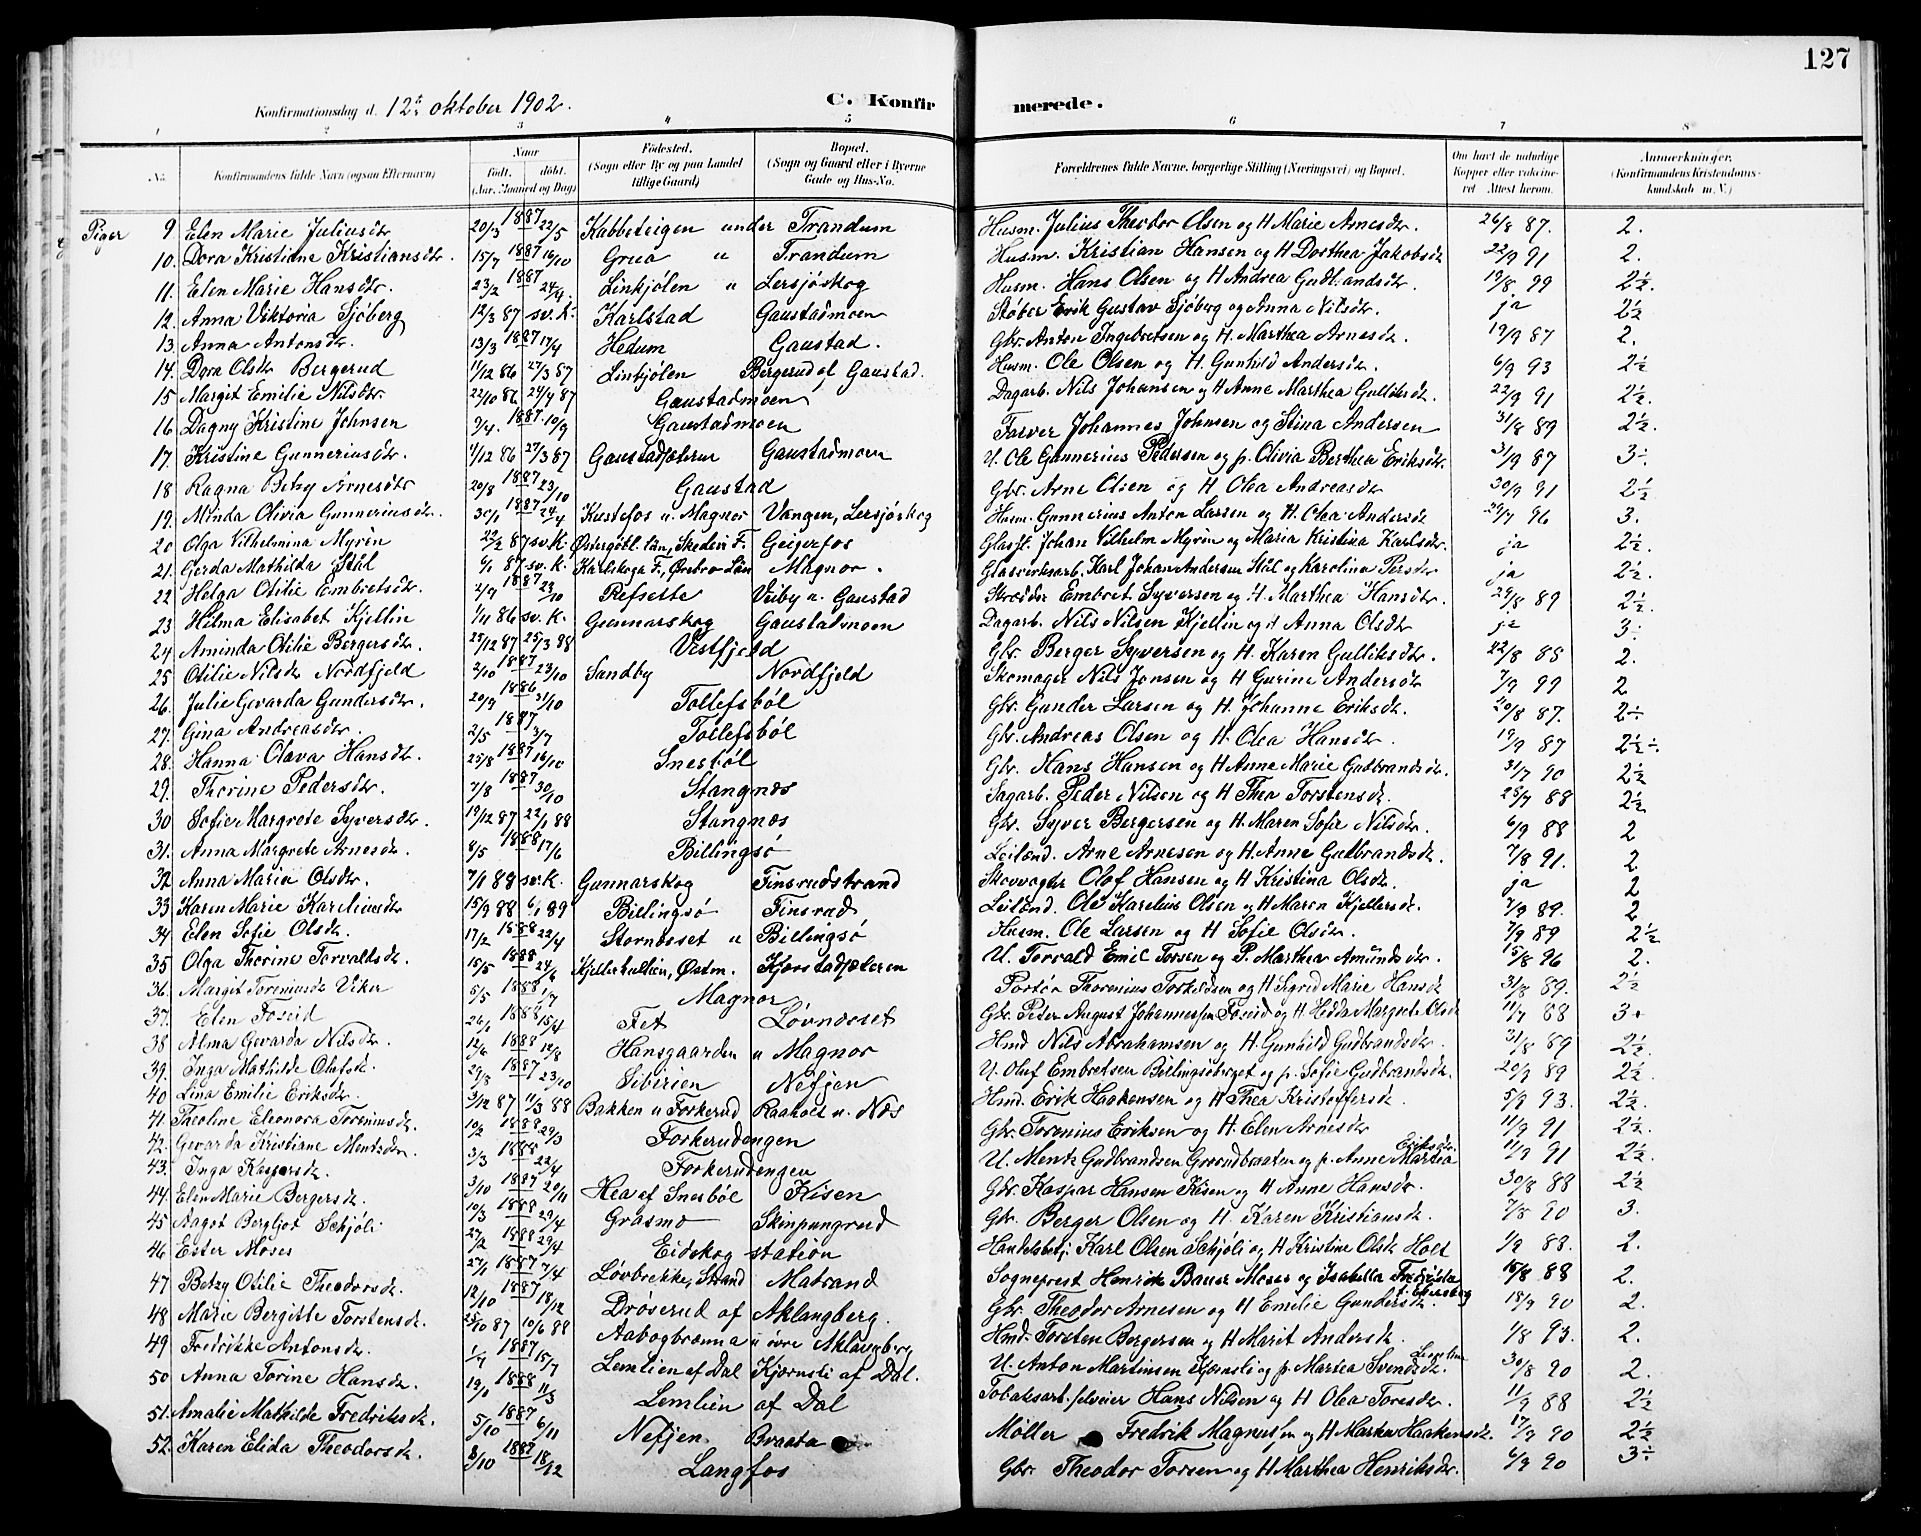 127
Konfirmationsdag d. 12te oktober 1902.
C. Konfirmerede.
1 2 3 4 5 6 7 8
No. Konfirmandens fulde Navn (ogsaa Efternavn) Naar født. døbt. (Aar, Maaned og Dag) Fødested. (Sogn eller By og paa Landet tillige Gaard) Bopæl. (Sogn og Gaard eller i Byerne Gade og Hus-No. Forældrenes fulde Navne, borgerlige Stilling (Næringsvei) og Bopæl. Om havt de naturlige Kopper eller vaccineret. Attest herom. Anmærkninger. (Konfirmandens Kristendomskundskab m. V.)
Piger 9 Elen Marie Juliusdr 20/3 1887 22/5 Kabbeteigen under Trandum Husm. Julius Theodor Olsen og H Marie Arnesdr. 26/8 87. 2.
10. Dora Kristiane Kristiansdr. 15/7 1887 16/10 Grua u Trandum Husm. Kristian Hansen og H Dorthea Jakobsdr 22/9 91 2.
11. Elen Marie Hansdr. 23/2 1887 24/4 Linkjølen u Lersjøskog Husm. Hans Olsen og H Andrea Gudbrandsdr. 19/8 99 2½.
12. Anna Viktoria Sjöberg 12/3 87 sv. K. Karlstad Gaustadmoen Støber Erik Gustav Sjöberg og Anna Nilsdr. ja 2½
13 Anna Antonsdr. 13/3 1887 17/4 Hedum Gaustad. Gbr. Anton Ingebretsen og H. Marthea Arnesdr. 19/9 87 2.
14. Dora Olsdr Bergerud 11/12 86 27/3 87 Linkjølen Bergerud af Gaustad. Husm. Ole Olsen og H. Gunhild Andersdr. 6/9 93 2½
15 Margit Emilie Nilsdr 22/10 86 24/4 87 Gaustadmoen Dagarb. Nils Johansen og H Anne Marthea Gulliksdr. 22/9 91 2½.
16 Dagny Kristine Johnsen 9/4. 1887. 10/9 Gaustadmoen Farver Johannes Johnsen og Stina Andersen 31/8 89 2½.
17. Kristine Gunneriusdr. 11/12 86 27/3 87 Gaustadsæteren Gaustadmoen U. Ole Gunnerius Pedersen og p. Olivia Berthea Eriksdr. 31/9 87 3÷
18 Ragna Betzy Arnesdr 20/8 1887 23/10 Gaustad Gbr. Arne Olsen og H Olea Andreasdr 30/9 91 2½
19. Minda Olivia Gunneriusdr. 30/1 1887 24/4 Kustefos u. Magnor Vangen, Lersjøskog Husm. Gunnerius Anton Larsen og H. Olea Andersdr 29/7 96 3.
20 Olga Vilhelmina Myrin 22/2 87 sv. K. Østergøtl. län, Skedevi F. Geijerfos Johan Vilhelm Myrin og Maria Kristina Karlsdr. ja 2½.
21. Gerda Mathilda Stål 4/1 87 sv. K. Karlskoga F., Ørebro Län Magnor. Glasverksarb. Karl Johan Andersen Stål og Karolina Persdr ja 2½.
22 Helga Otilie Embretsdr. 2/9 1887 23/10 Refsette Veiby u. Gaustad Skrædder Embret Syversen og H. Marthea Hansdr. 29/8 89 2½
23 Hilma Elisabet Kjellin 1/11 86 sv. K. Gunnarskog Gaustadmoen Dagarb. Nils Nilsen Kjellin og H Anna Olsdr ja 3÷
24 Aminda Otilie Bergersdr. 25/12 87 25/3 88 Vestfjeld Gbr. Berger Syversen og H. Karen Gulliksdr. 22/8 85 2.
25 Otilie Nilsdr Nordfjeld 2/10 1887 23/10 Sandby Nordfjeld Skomager Nils Jonsen og H Gurine Andersdr 7/9 99 2
26. Julie Gevarda Gundersdr. 20/9 1886 31/10 Tollefsbøl Gbr. Gunder Larsen og H. Johanne Eriksdr. 20/8 87. 2÷
27. Gina Andreasdr. 2/5 1887 3/7 Tollefsbøl Gbr. Andreas Olsen og H. Olea Hansdr. 19/9 87 2½÷
28. Hanna Olava Hansdr. 25/8 1887 16/10 Snesbøl Gbr. Hans Hansen og H Anne Marie Gudbrandsdr. 31/7 90 2½
29. Thorine Pedersdr. 7/8 1887 30/10 Stangnæs Sagarb. Peder Nilsen og H Thea Torstensdr. 25/7 88 2½
30 Sofie Margrete Syversdr. 19/12 87 22/1 88 Stangnæs Gbr. Syver Bergersen og H. Maren Sofie Nilsdr. 6/9 88 2
31. Anna Margrete Arnesdr. 8/5 1888 17/6 Billingsø Leilænd. Arne Arnesen og H. Anne Gudbrandsdr. 7/8 91. 2
32 Anna Maria Olsdr. 7/1 88 sv. K. Gunnarskog Finsrudstrand Skovvogter Olof Hansen og H Kristina Olsdr. ja 2
33 Karen Marie Kareliusdr 15/9 88 6/1 89 Billingsø Finsrud Leilænd. Ole Karelius Olsen og H Maren Kjellersdr. 7/9 89. 2
34 Elen Sofie Olsdr. 17/2 1888 22/4 Stornæset u Billingsø Husm. Ole Larsen og H Sofie Olsdr. 7/9 89 2½
35 Olga Thorine Torvaldsdr. 15/5 1888 24/6 Kjellerhultien, Østm. Kjerstadsæteren U. Torvald Emil Torsen og P. Marthea Amundsdr. 15/8 96 2.
36. Margit Toreniusdr Viker 5/5 1888 1/7 Magnor Portør Thorenius Torkildsen og H Sigrid Marie Hansdr 31/8 89. 2½
37. Elen Foseid 26/1 1888 15/4 Fet Løvnæset Gbr. Peter August Johannessen Foseid og H Hedda Margrete Olsdr 11/7 88 3+
38 Alma Gevarda Nilsdr. 12/6 1888 12/8 Hansgaarden u Magnor Hmd Nils Abrahamsen og H. Gunhild Gudbrandsdr. 31/8 89 2½.
39. Inga Mathilde Olafsdr. 29/8 1887 23/10 Sibirien Nefjen U. Oluf Embretsen Billingsberget og p. Sofie Gudbrandsdr. 20/9 89 2½.
40 Lina Emilie Eriksdr. 3/12 87 11/3 88 Bakken u Forkerud Raaholt u. Næs Hmd. Erik Haakensen og H Thea Kristoffersdr. 5/9 93. 2½.
41. Theoline Eleonora Toreniusdr. 10/2 1888 29/3 Forkerudengen Gbr. Torenius Eriksen og H. Elen Arnesdr 11/9 91 2½.
42. Gevarda Kristiane Mentsdr. 3/3 1888 22/4 Forkerudengen U. Mentz Gudbrandsen Grorudbraaten og p. Anne Martea Eriksdr. 11/9 91 2½.
43. Inga Kaspersdr. 3/10 1887 20/11 Hea af Snesbøl Kisen Gbr. Kaspar Hansen Kisen og H Anne Hansdr. 30/8 88 2½
44. Elen Marie Bergersdr. 10/3 1888 29/4 Grasmo Skinpungrud Gbr. Berger Olsen og H. Karen Kristiansdr. 7/8 90 3.
45 Aagot Bergljot Schjøli 27/2 1888 29/4 Eidskog station Handelsbetj. Karl Olsen Schjøli og H Kristine Olsdr Holt 1/9 88. 2.
46 Ester Moses 27/1 1887 7/4 Løvbrekke, Strand Matrand Sogneprest Henrik Bauer Moses og Isabella Fredrikke 15/8 88 2.
47 Betzy Otilie Theodorsdr. 12/10 1887 18/12 Drøserud af Aklangberg. Gbr. Theodor Arnesen og H Emilie Gundersdr. 18/9 90 2.
48 Marie Bergitte Torstensdr. 23/10 87 10/6 88 Aabogbrænna u øvre Aklangberg Hmd. Torsten Bergersen og H Marit Andersdr. 1/8 93. 2.
49 Fredrikke Antonsdr. 1/7 1887 15/7 Lemlien af Dal Kjørnsli af Dal. U. Anton Martinsen Kjernsli og p. Martea Svendsdr. 30/8 90 2.
50 Anna Torine Hansdr. 19/10 1888 11/3 Lemlien af Dal Tobaksarb. Hans Nilsen og H Olea Toresdr. 11/9 88 2½
51. Amalie Mathilde Fredriksdr. 5/10 1887 6/11 Nefjen. Braata Møller Fredrik Magnussen og H Marthea Haakensdr. 17/9 90 2½
52. Karen Elida Theodorsdr. 8/10 1887 18/12 Langfos Gbr. Theodor Torsen og H Marthea Henriksdr. 6/9 90 3÷